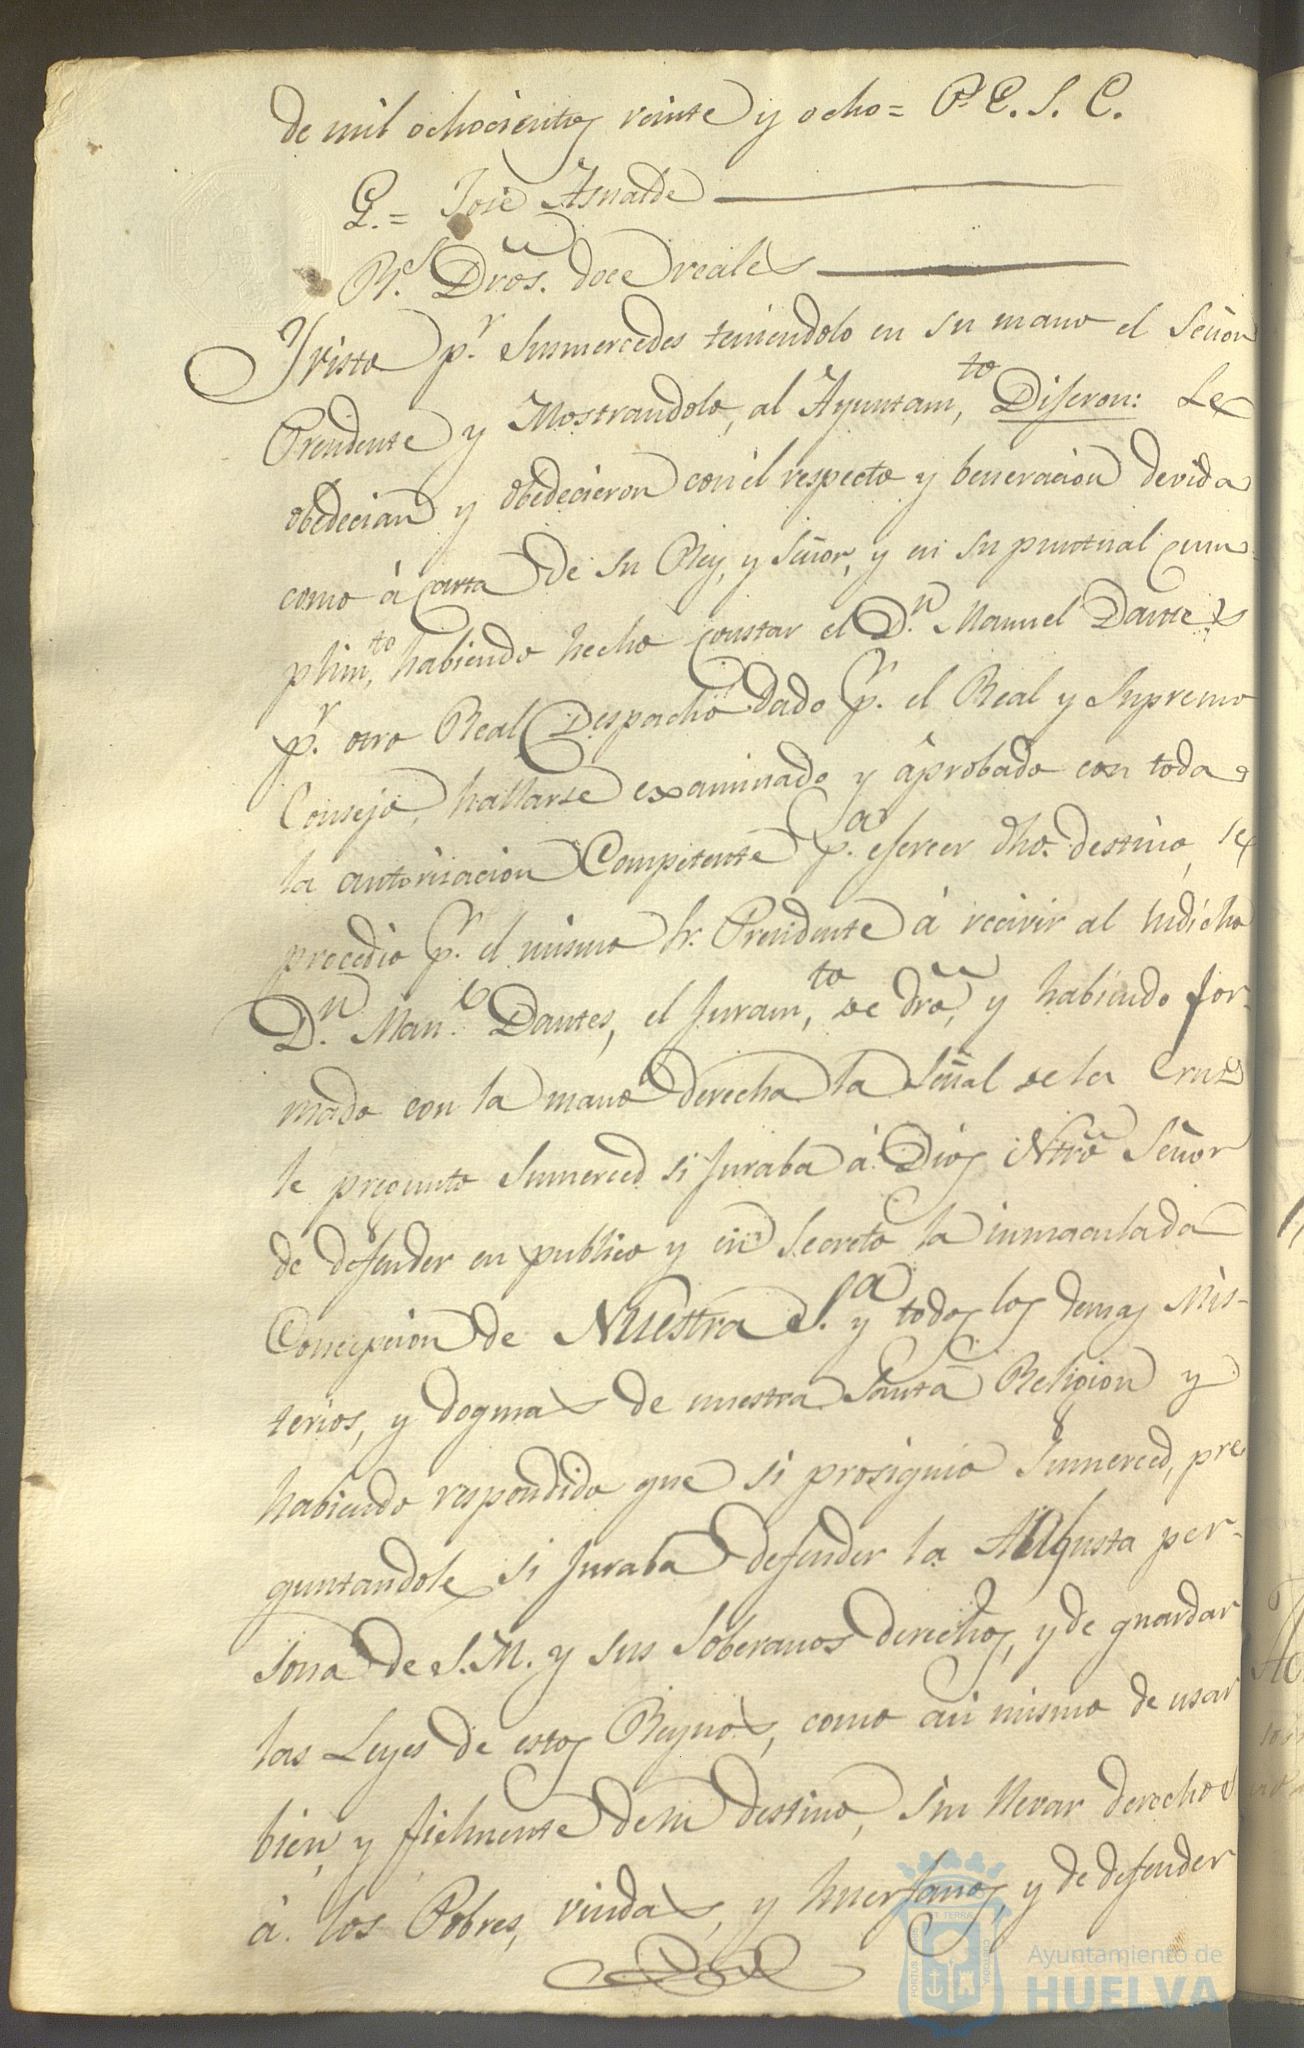 de mil ochocientos veinte y ocho = P. E. S. C.
E. = José Asnalde
Rs. Dros. doce reales
Y visto pr. Sumercedes teniendolo en su mano el Señor
Presidente y Mostrandolo, al Ayuntamto, Diseron: Le
obedecian y obedecieron con el respecto y beneracion devida
como à Carta de su Rey, y Señor, y en su puntual cum-
plimto, habiendo hecho constar el Dn. Manuel Dantes
pr. otro Real Despacho dado pr. el Real y Supremo
Consejo, hallarse examinado y aprobado con toda
la autorisacion Competente pa. esercer dho. destino, se
procedio pr. el mismo Sr. Presidente à recivir al Susodicho
Dn. Manl. Dantes, el Juramto, de dro, y habiendo for-
mado con la mano derecha la Señal de la Cruz
le pregunto Sumerced si Juraba à Dios Ntro Señor
de defender en publico y en Secreto la inmaculada
Concepcion de Nuestra Sa. y todos los demas Mis-
terios, y dogmas de nuestra Santa Religion y
habiendo respondido que si prosiguio Sumerced, pre
guntandole si Juraba defender la Augusta per-
sona de S.M. y sus Soberanos derechos, y de guardar
las Leyes de estos Reynos, como asi mismo de usar
bien, y fielmente de su destino, sin llevar derechos
à los Pobres, viudas, y Huerfanos, y de defender
Ayuntamiento de
HUELVA